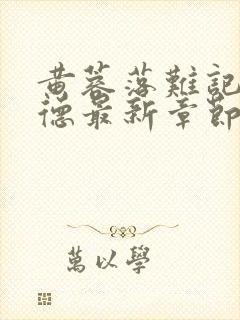 黄蓉落難記
德最新章節
萬以學